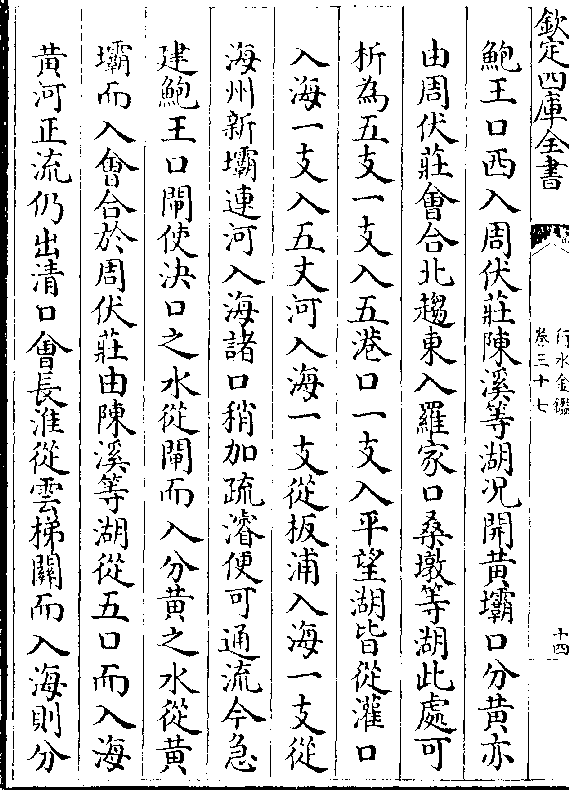 欽定四庫全書
行水金鑑
卷三十七
十四
鮑王口西入周伏莊陳溪等湖况開黃壩口分黃亦
由周伏莊會合北趨東入羅家口桑墩等湖此處可
析為五支一支入五港口一支入平望湖皆從灌口
入海一支入五丈河入海一支從板浦入海一支從
海州新壩連河入海諸口稍加疏濬便可通流今急
建鮑王口閘使決口之水從閘而入分黃之水從黃
壩而入會合於周伏莊由陳溪等湖從五口而入海
黃河正流仍出清口會長淮從雲梯關而入海則分